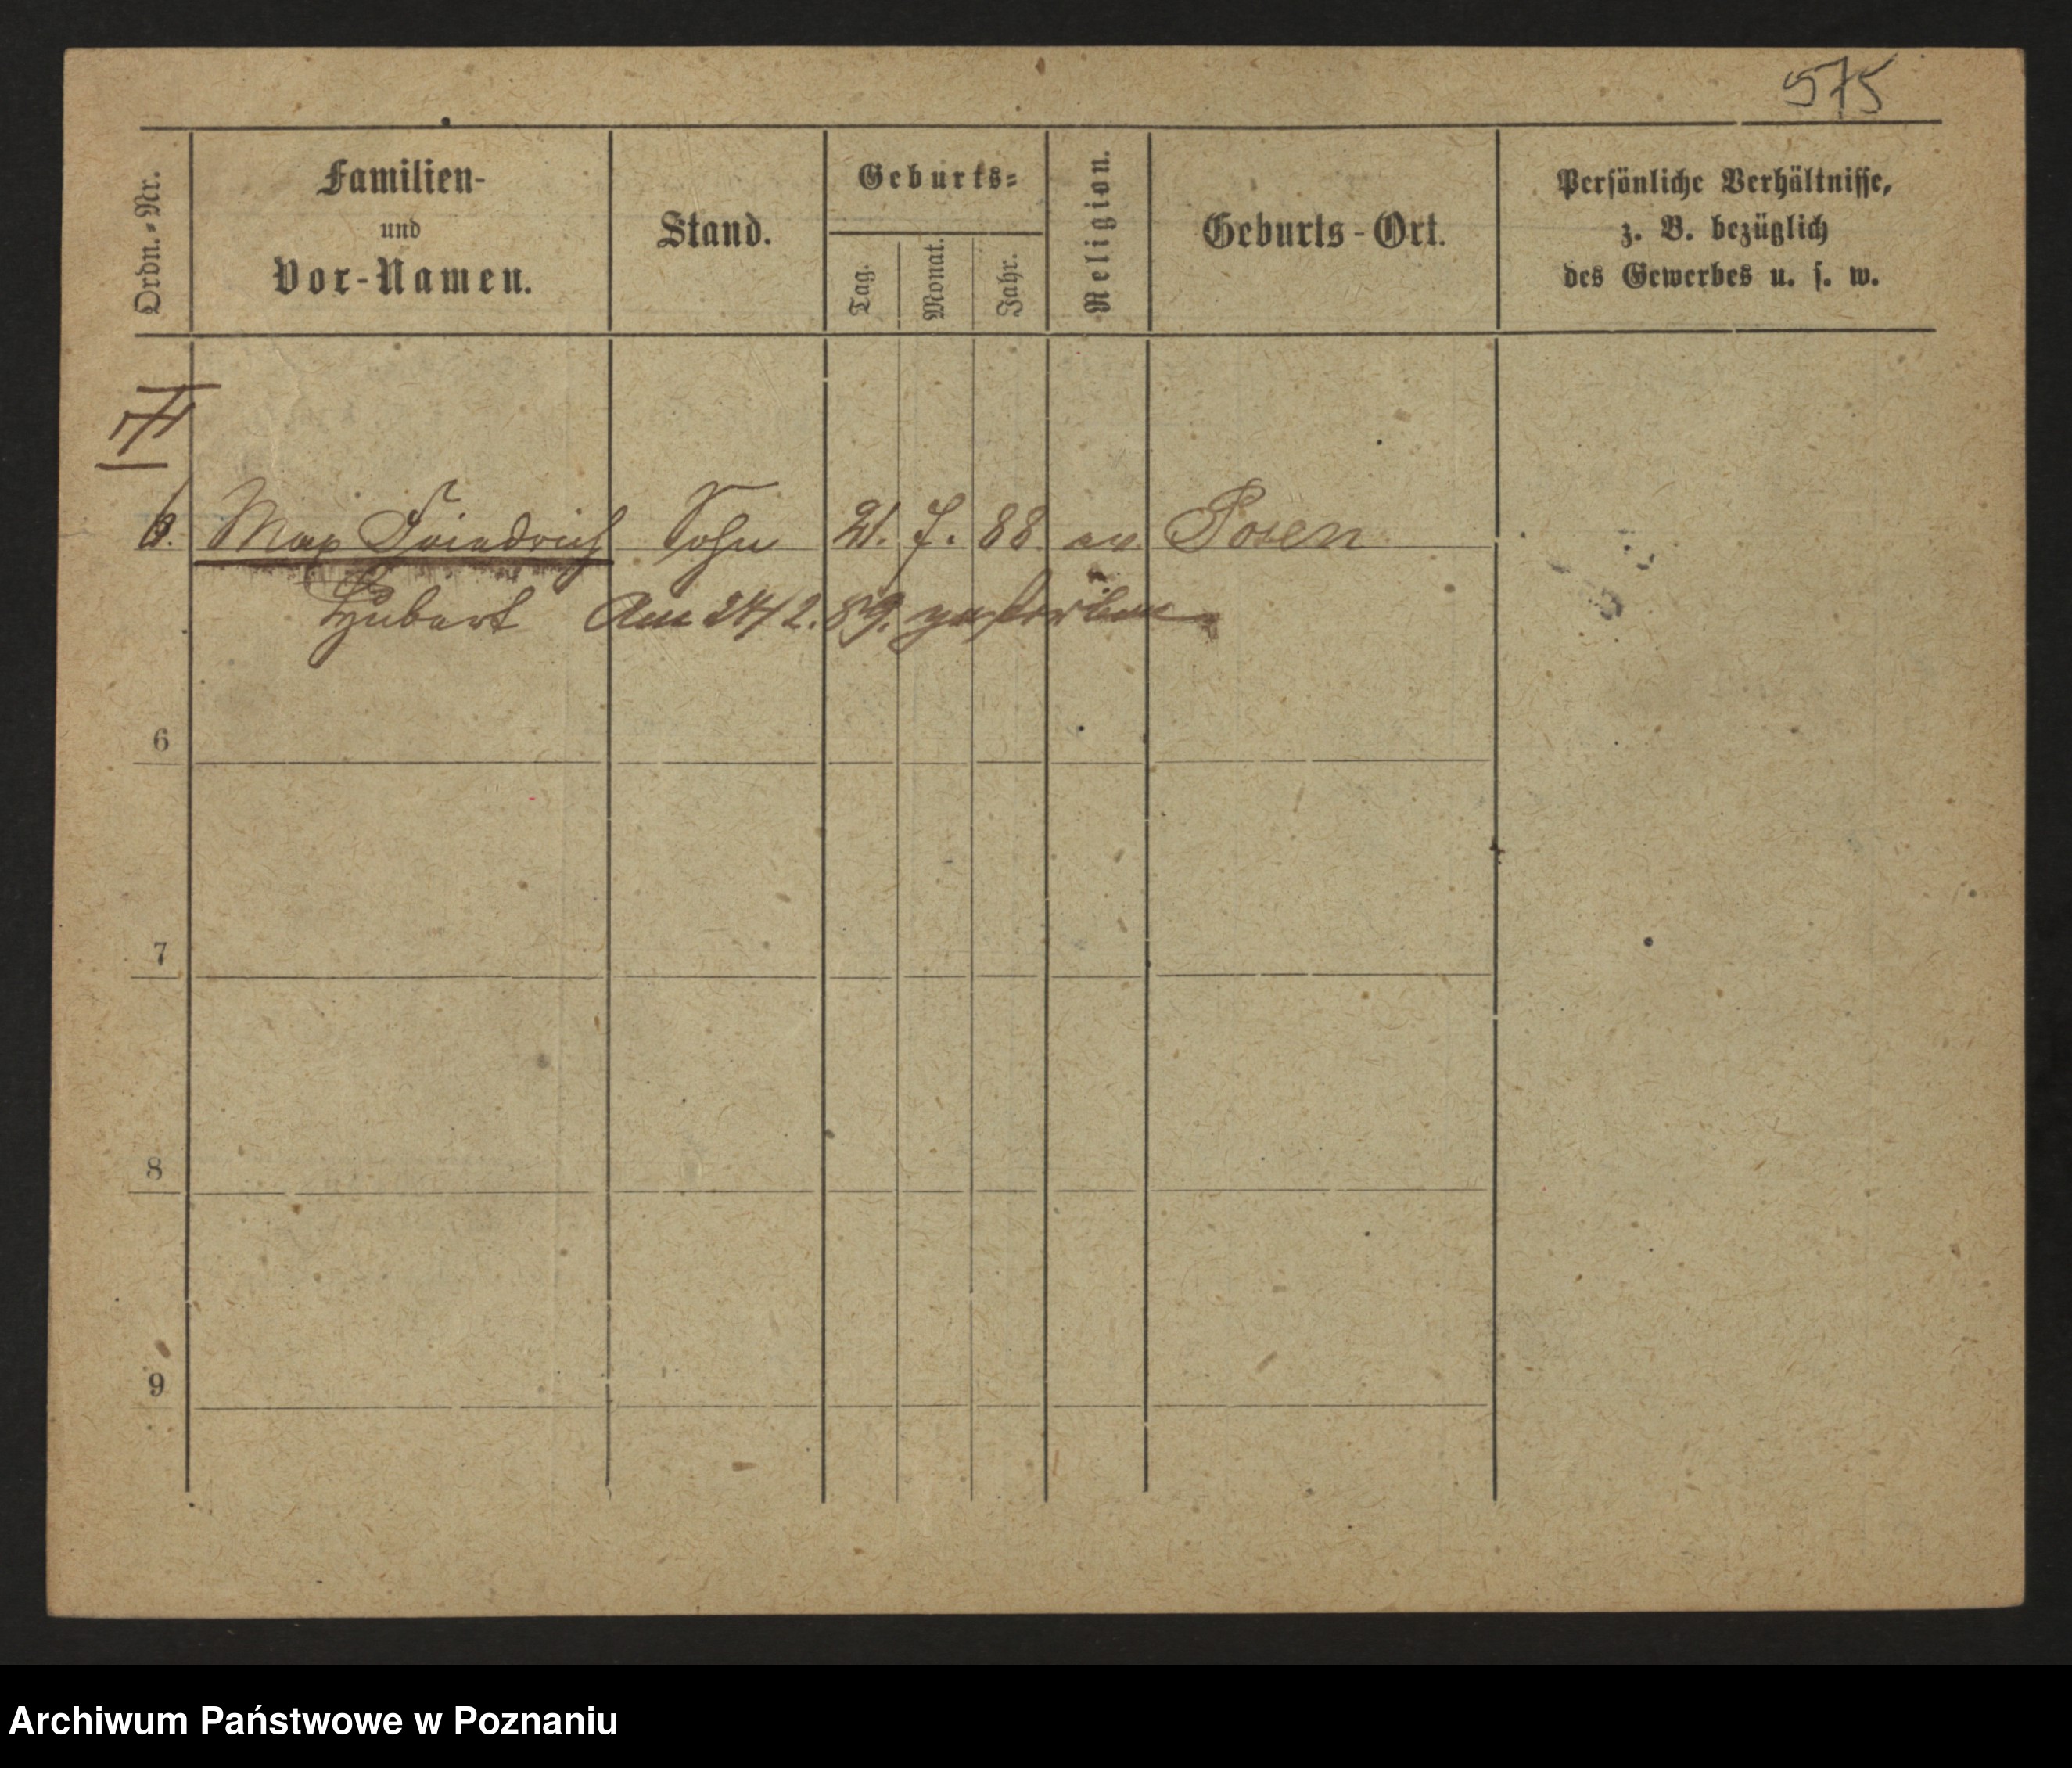 575
Ordn.-Nr.
Familien-
und
Vor-Namen.
Stand.
Geburts-
Tag.
Monat.
Jahr.
Religion.
Geburts-Ort.
Persönliche Verhältnisse,
z. B. bezüglich
des Gewerbes u. s. w.
6. Max Friedrich Sohn 21. 7. 88 ev Posen
Hubert Am 24/2. 89. gestorben
6
7
8
9
Archiwum Państwowe w Poznaniu